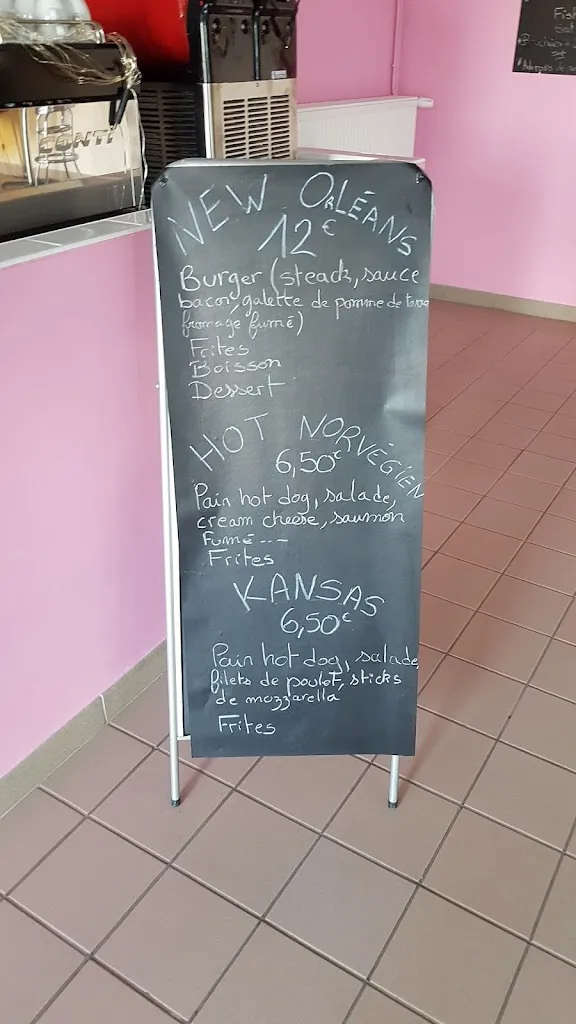 NEW ORLÉANS
12€
Burger (steack, sauce
bacon, galette de pomme de terre
fromage fumé)
Frites
Boisson
Dessert
HOT NORVÉGIEN
6,50€
Pain hot dog, salade,
cream cheese, saumon
fumé ---
Frites
KANSAS
6,50€
Pain hot dog, salade
filets de poulet, sticks
de mozzarella
Frites
CONTI